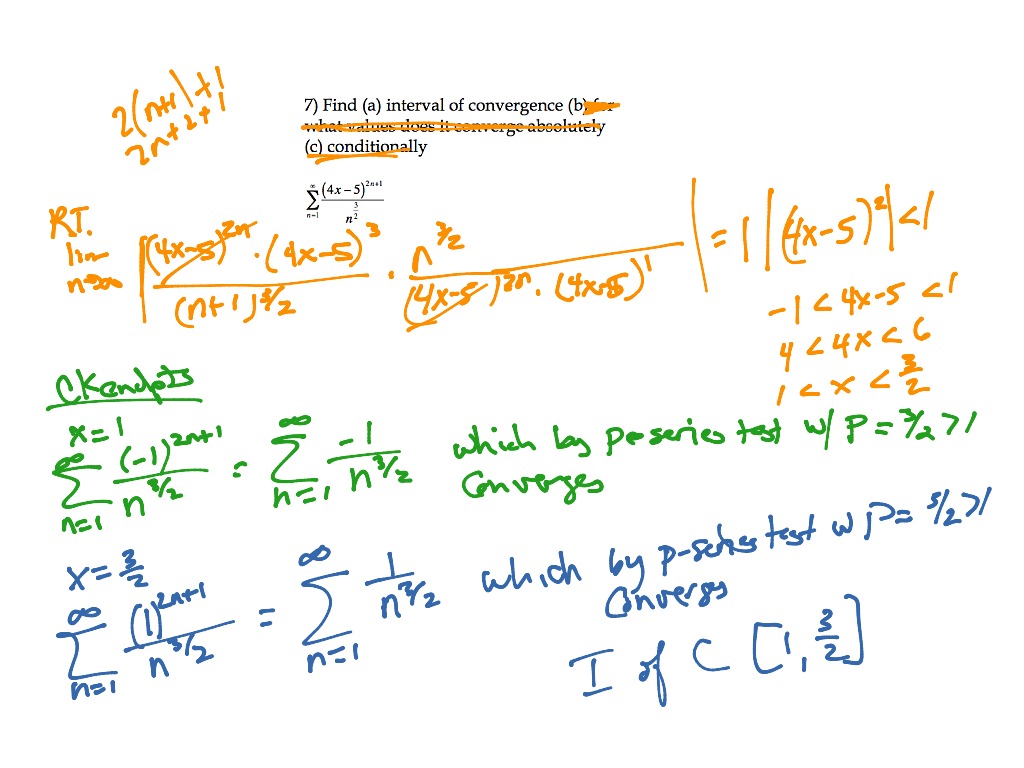 2(n+1)+1
2n+2+1
7) Find (a) interval of convergence (b) for
what values does it converge absolutely
(c) conditionally
∞ Σ n=1 (4x – 5)^{2n+1} / n^{3/2}
RT.
lim n→∞ | (4x-5)^{2n} · (4x-5)^3 / (n+1)^{3/2} · n^{3/2} / (4x-5)^{2n} · (4x-5)^1 | = 1 |(4x-5)^2| < 1
-1 < 4x-5 < 1
4 < 4x < 6
1 < x < 3/2
CK endpts
x=1
∞ Σ n=1 (-1)^{2n+1} / n^{3/2} = ∞ Σ n=1 -1 / n^{3/2} which by p-series test w/ P = 3/2 > 1
Converges
x = 3/2
∞ Σ n=1 (1)^{2n+1} / n^{3/2} = ∞ Σ n=1 1 / n^{3/2} which by p-series test w/ P = 3/2 > 1
Converges
I of C [1, 3/2]